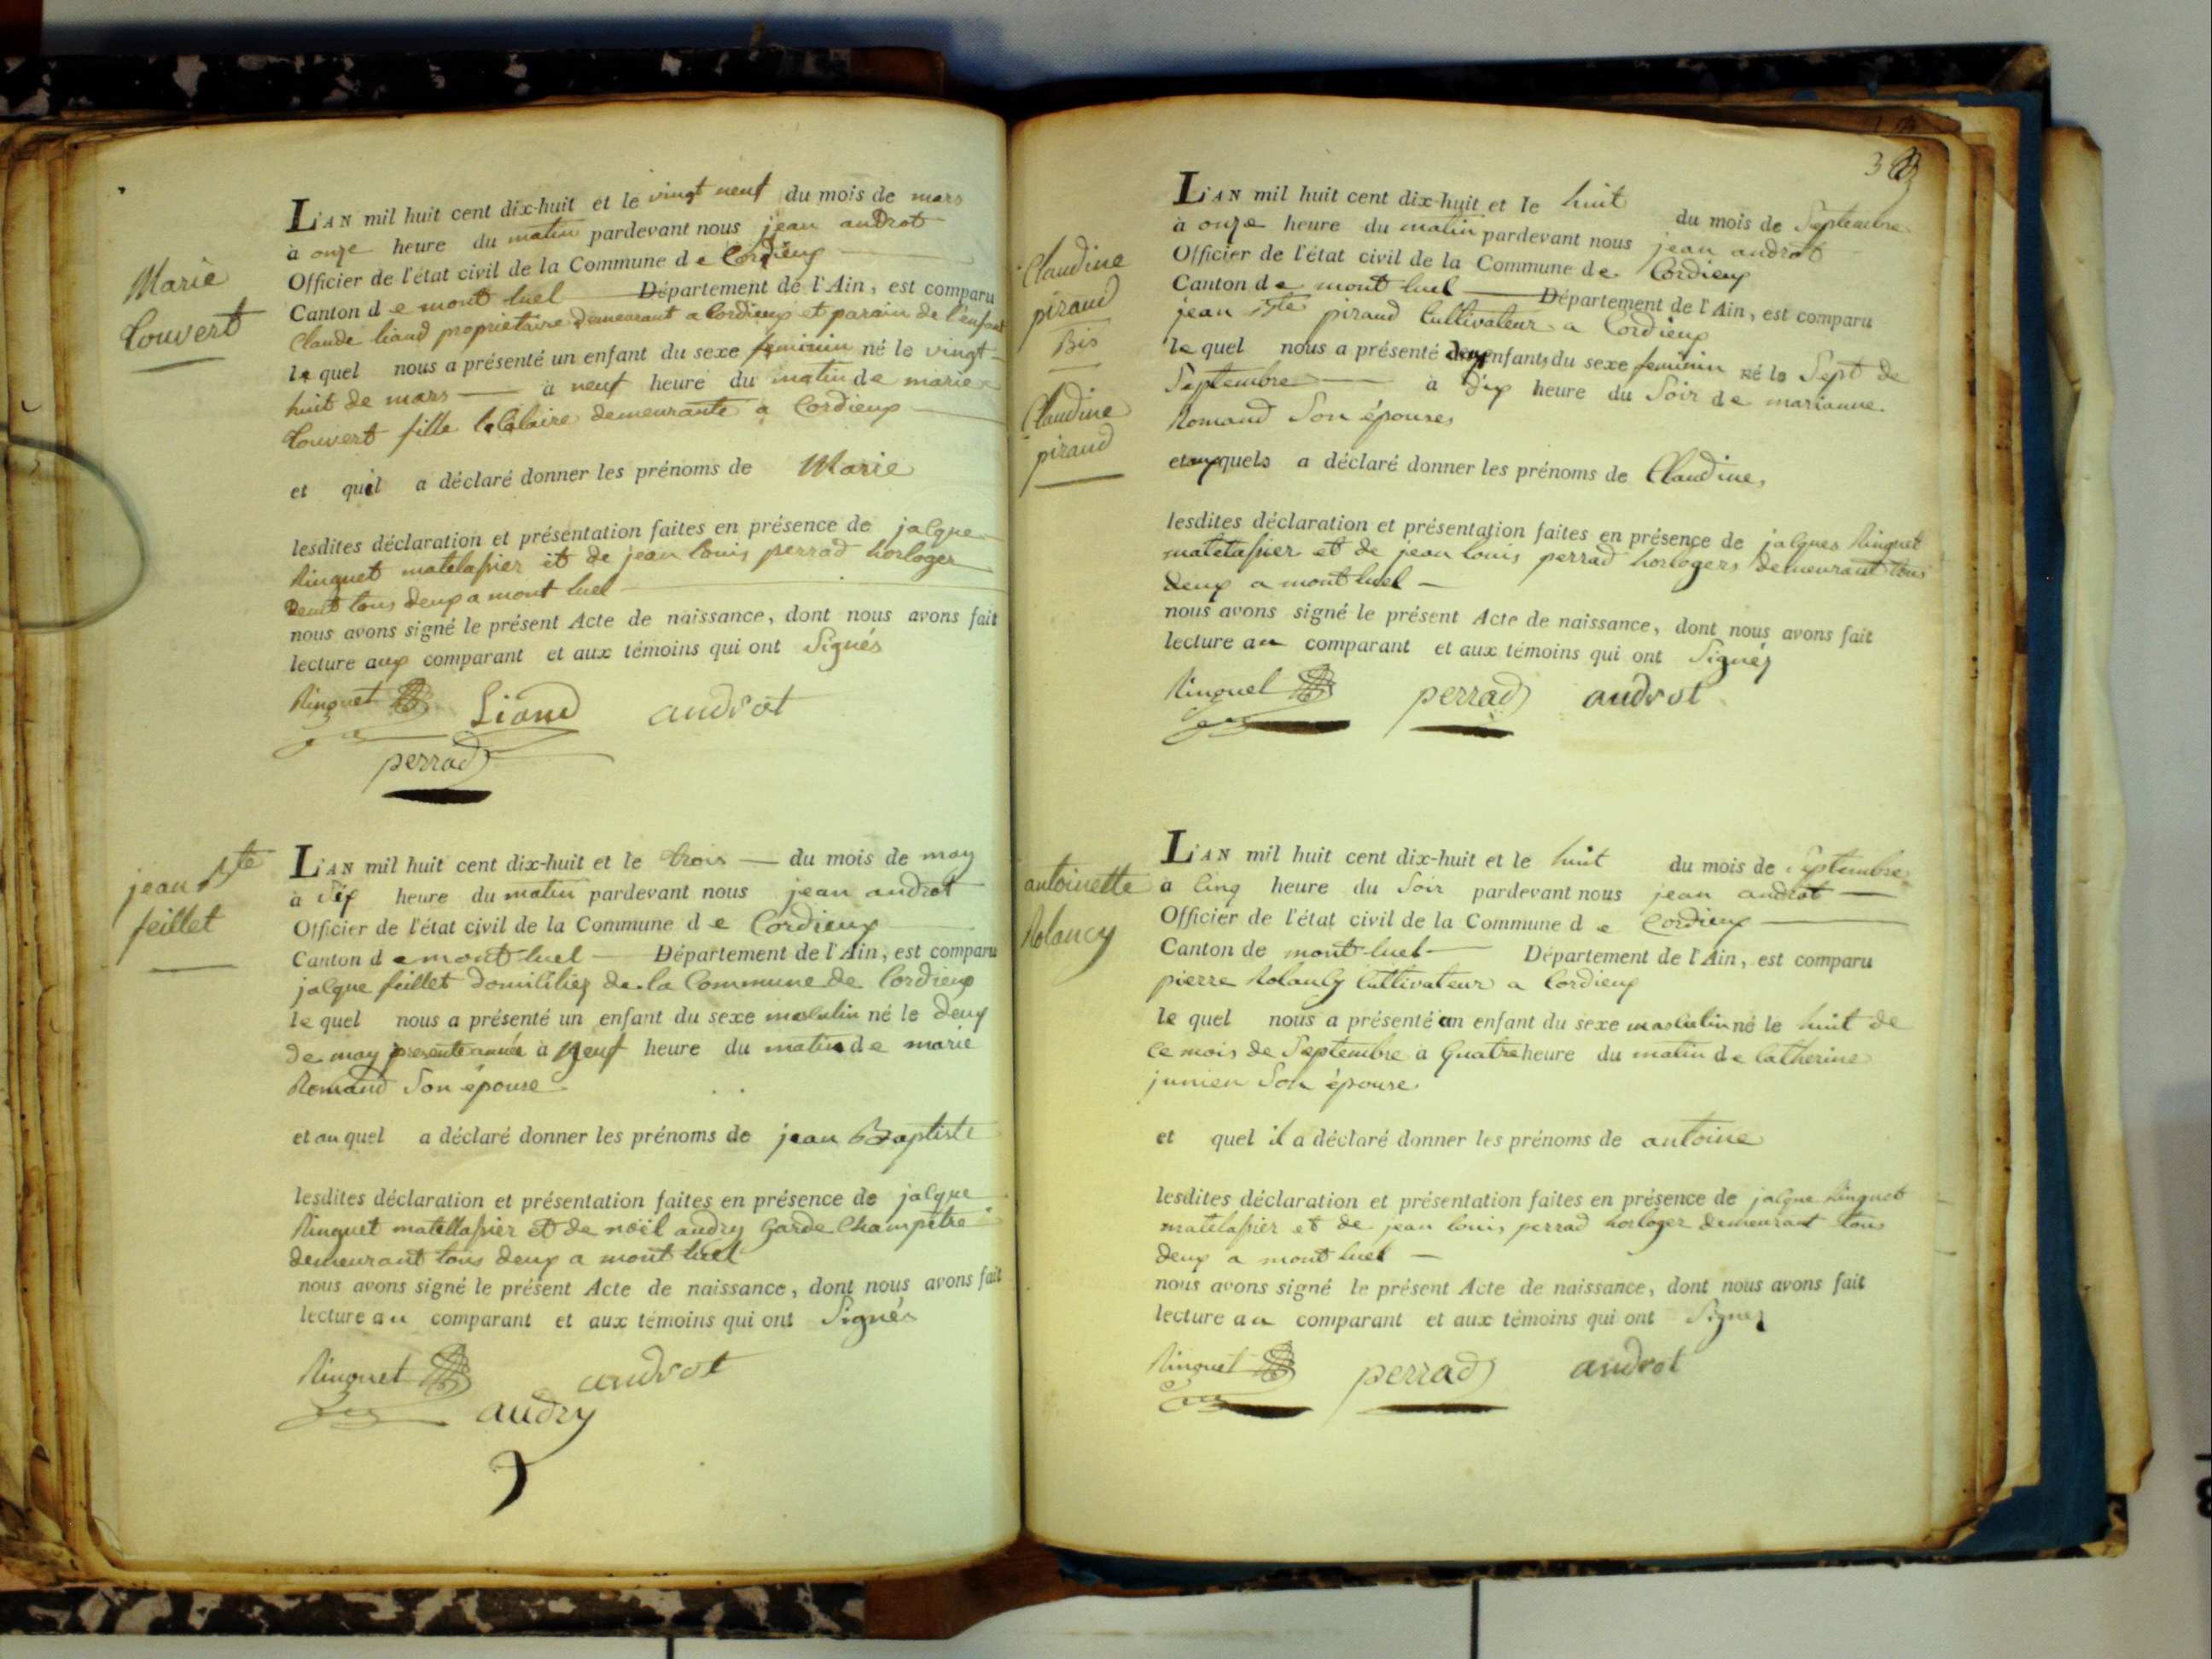 Marie
Couvert
L'AN mil huit cent dix-huit et le vingt neuf du mois de mars
à onze heure du matin pardevant nous jean androt
Officier de l'état civil de la Commune de Cordieux
Canton de mont luel Département de l'Ain, est comparu
Claude liand propriétaire demeurant a Cordieux et parain de l'enfant
le quel nous a présenté un enfant du sexe feminin né le vingt
huit de mars à neuf heure du matin de marie
Couvert fille demeurante a Cordieux
et quil a déclaré donner les prénoms de Marie
lesdites déclaration et présentation faites en présence de jacque
Ringuet matelassier et de jean louis perrad horloger
demt tous deux a mont luel
nous avons signé le présent Acte de naissance, dont nous avons fait
lecture aux comparant et aux témoins qui ont Signés
Ringuet Liand androt
perrad
jean Bte
feillet
L'AN mil huit cent dix-huit et le trois du mois de may
à Six heure du matin pardevant nous jean androt
Officier de l'état civil de la Commune de Cordieux
Canton de mont luel Département de l'Ain, est comparu
jacque feillet domiciliez de la Commune de Cordieux
le quel nous a présenté un enfant du sexe masculin né le deux
de may presente année à Neuf heure du matin de marie
Romand Son épouse
et au quel a déclaré donner les prénoms de jean Baptiste
lesdites déclaration et présentation faites en présence de jacque
Ringuet matellassier et de noël audry Garde Champêtre
demeurant tous deux a mont luel
nous avons signé le présent Acte de naissance, dont nous avons fait
lecture au comparant et aux témoins qui ont Signés
Ringuet androt
audry
Claudine
piraud
Bis
Claudine
piraud
L'AN mil huit cent dix-huit et le huit du mois de Septembre
à onze heure du matin pardevant nous jean androt
Officier de l'état civil de la Commune de Cordieux
Canton de mont luel Département de l'Ain, est comparu
jean Bte piraud Cultivateur a Cordieux
le quel nous a présenté deux enfants du sexe feminin né le Sept de
Septembre à dix heure du Soir de marianne
Romand Son épouse
et auxquels a déclaré donner les prénoms de Claudine,
lesdites déclaration et présentation faites en présence de jacques Ringuet
matelassier et de jean louis perrad horlogers demeurant tous
deux a mont luel
nous avons signé le présent Acte de naissance, dont nous avons fait
lecture au comparant et aux témoins qui ont Signés
Ringuet perrad androt
antoinette
Rolancy
L'AN mil huit cent dix-huit et le huit du mois de Septembre
à Cinq heure du Soir pardevant nous jean androt
Officier de l'état civil de la Commune de Cordieux
Canton de mont-luel Département de l'Ain, est comparu
pierre Rolancy Cultivateur a Cordieux
le quel nous a présenté un enfant du sexe masculin né le huit de
ce mois de Septembre à Quatre heure du matin de Catherine
junien Son épouse
et quel il a déclaré donner les prénoms de antoine
lesdites déclaration et présentation faites en présence de jacque Ringuet
matelassier et de jean louis perrad horloger demeurant tous
deux a mont luel
nous avons signé le présent Acte de naissance, dont nous avons fait
lecture au comparant et aux témoins qui ont Signez
Ringuet perrad androt